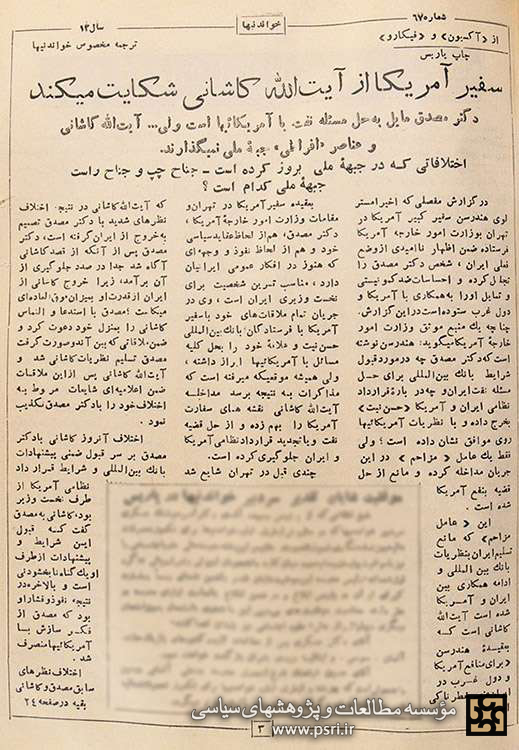 شماره ۶۷
خواندنیها
سال ۱۲
از «آکسیون» و «فیگارو»
چاپ پاریس
ترجمه مخصوص خواندنیها
سفیر آمریکا از آیت‌الله کاشانی شکایت میکند
دکتر مصدق مایل به حل مسئله نفت با آمریکائیها است ولی... آیت‌الله کاشانی
و عناصر «افراطی» جبهه ملی نمیگذارند.
اختلافاتی که در جبههٔ ملی بروز کرده است ــ جناح چپ و جناح راست
جبههٔ ملی کدام است ؟
در گزارش مفصلی که اخیر امستر
لوی هندرسن سفیر کبیر آمریکا در
تهران بوزارت امور خارجه آمریکا
فرستاده ضمن اظهار ناامیدی از وضع
فعلی ایران ، شخص دکتر مصدق را
تجلیل کرده و احساسات ضد کمونیستی
و تمایل اورا به‌همکاری با آمریکا و
دول غرب ستوده است در این گزارش.
چنانچه یک منبع موثق وزارت امور
خارجهٔ آمریکا میگوید: هندرسن نوشته
است که دکتر مصدق چه در مورد قبول
شرایط بانک بین‌المللی برای حل
مسئله نفت ایران و چه در باره قرارداد
نظامی ایران و آمریکا «حسن نیت»
بخرج داده و با نظریات آمریکائیها
روی موافق نشان داده است ؛ ولی
فقط یک عامل « مزاحم » در این
جریان مداخله کرده و مانع از حل
قضیه بنفع آمریکا
شده است .
این « عامل
مزاحم» که مانع
تسلیم ایران بنظریات
بانک بین المللی و
ادامه همکاری بین
ایران و آمریکا
شده است آیت‌الله
کاشانی است که
بعقیدهٔ هندرسن
«برای منافع آمریکا
و دول غرب در
بعقیده سفیر آمریکا در تهران و
مقامات وزارت امور خارجهٔ آمریکا ،
دکتر مصدق، هم از لحاظ عقاید سیاسی
خود و هم از لحاظ نفوذ و وجهه‌ای
که هنوز در افکار عمومی ایرانیان
دارد ، مناسب ترین شخصیت برای
نخست وزیری ایران است ، وی در
جریان تمام ملاقات های خود با سفیر
آمریکا با فرستادگان بانک بین‌المللی
حسن نیت و علاقهٔ خود را بحل کلیه
مسائل با آمریکائیها ابراز داشته ،
ولی همیشه موقعیکه میرفته است که
مذاکرات به نتیجه برسد مداخله
آیت‌الله کاشانی نقشه های سفارت
آمریکا را بهم زده و از حل قضیه
نفت و یا تجدید قرارداد نظامی آمریکا
و ایران جلوگیری کرده است.
چندی قبل در تهران شایع شد
که آیت‌الله کاشانی در نتیجه اختلاف
نظرهای شدید با دکتر مصدق تصمیم
به‌خروج از ایران گرفته است، دکتر
مصدق پس از آنکه از قصد کاشانی
آگاه شد جدا در صدد جلوگیری از
آن برآمد، زیرا خروج کاشانی از
ایران از قدرت او بمیزان فوق‌العاده‌ای
میکاست ؛ مصدق با استدعا و التماس
کاشانی را بمنزل خود دعوت کرد و
ضمن ملاقاتی که بین آندو صورت گرفت
مصدق تسلیم نظریات کاشانی شد و
آیت‌الله کاشانی پس از این ملاقات
ضمن اعلامیه‌ای شایعات مربوط به
اختلاف خود را با دکتر مصدق تکذیب
نمود .
اختلاف آنروز کاشانی با دکتر
مصدق بر سر قبول ضمنی پیشنهادات
بانک بین‌المللی و شرایط قرار داد
نظامی آمریکا از
طرف نخست وزیر
بود، کاشانی به مصدق
گفت که قبول
این شرایط و
پیشنهادات از طرف
او یک گناه نابخشودنی
است و بالاخره در
نتیجه نفوذ و فشار او
بود که مصدق از
فکر سازش با
آمریکائیها منصرف
شد .
اختلاف نظرهای
سابق مصدق و کاشانی
بقیه در صفحه ۲۴
۳
مؤسسه مطالعات و پژوهشهای سیاسی
www.psri.ir